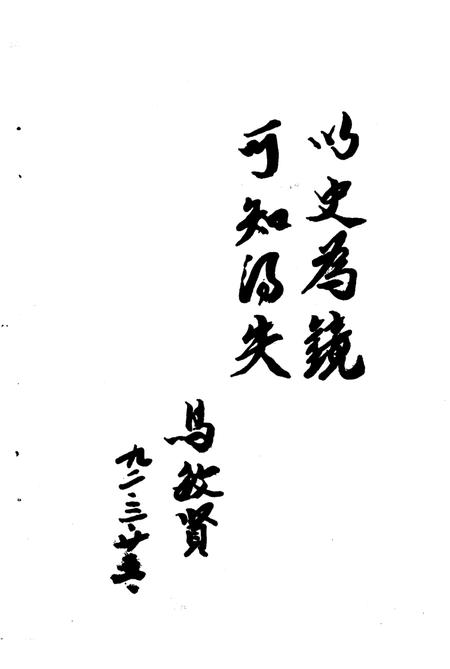 以史為鏡
可知得失
馬敏賢
九二、三、廿五、